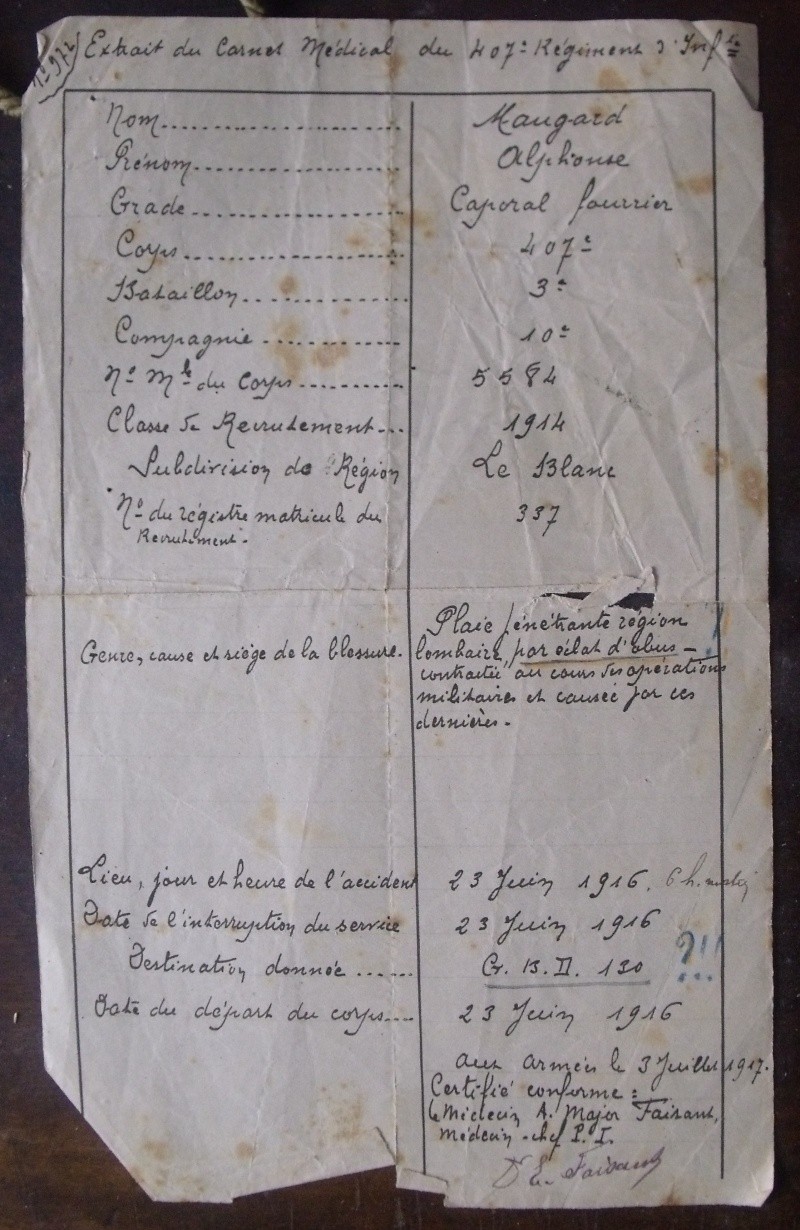 N° 972
Extrait du Carnet Médical du 407e Régiment d'Infie
Nom.................... Maugard
Prénom.................... Alphonse
Grade.................... Caporal fourrier
Corps.................... 407e
Bataillon.................... 3e
Compagnie.................... 10e
N° Mle du Corps.......... 5584
Classe de Recrutement... 1914
Subdivision de Région Le Blanc
N° du régistre matricule du 337
Recrutement.
Genre, cause et siège de la blessure. Plaie pénétrante région
lombaire, par éclat d'obus -
contractée au cours des opérations
militaires et causée par ces
dernières.
Lieu, jour et heure de l'accident 23 Juin 1916. 6 h. matin
Date de l'interruption du service 23 Juin 1916
Destination donnée ...... G. B. D. 130 ?!!
Date du départ du corps.... 23 Juin 1916
aux armées le 3 Juillet 1917.
Certifié conforme :
le Médecin A. Major Faisant,
Médecin-chef P. I.
Dr E. Faisant